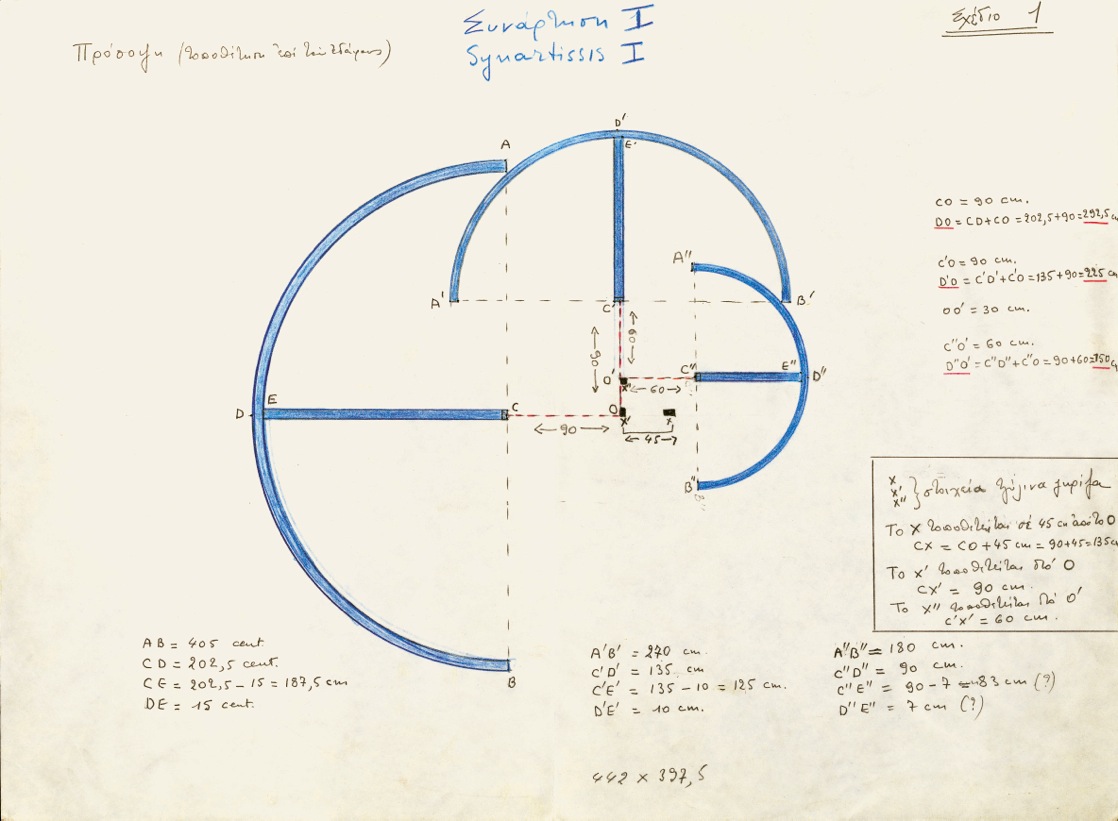 Συνάρτησις I
Synartissis I
Σχέδιο 1
Πρόσοψη (τοποθέτηση ἐπί τοῦ ἐδάφους)
D'
E'
A
A'
B'
C'
A"
60
90
O'
x"
60
C"
E"
D"
D
E
C
O
x'
x
90
45
B"
B
CO = 90 cm.
DO = CD+CO = 202,5+90=292,5 c
C'O = 90 cm.
D'O = C'D'+C'O=135+90=225 c
OO' = 30 cm.
C"O' = 60 cm.
D"O' = C"D"+C"O=90+60=150 c
x
x'
x"
} στοιχεία ξύλινα γκρίζα
Το x τοποθετεῖται σέ 45 cm ἀπό τό O
Cx = CO + 45 cm = 90+45=135 c
Το x' τοποθετεῖται στό O
Cx' = 90 cm.
Το x" τοποθετεῖται στό O'
C'x' = 60 cm.
AB = 405 cent.
CD = 202,5 cent.
CE = 202,5 - 15 = 187,5 cm
DE = 15 cent.
A'B' = 270 cm.
C'D' = 135 cm
C'E' = 135 - 10 = 125 cm.
D'E' = 10 cm.
A"B" = 180 cm.
C"D" = 90 cm.
C"E" = 90 - 7 = 83 cm (?)
D"E" = 7 cm (?)
442 x 397,5